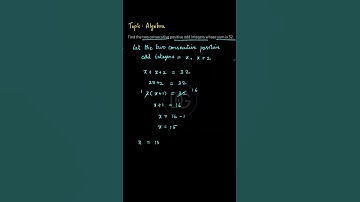 Topic : Algebra
Find the two consecutive positive odd integers whose sum is 32.
Let the two consecutive positive
odd integers = x, x+2
x + x+2 = 32
2x+2 = 32
1 2(x+1) = 32 16
x+1 = 16
x = 16 - 1
x = 15
x = 15